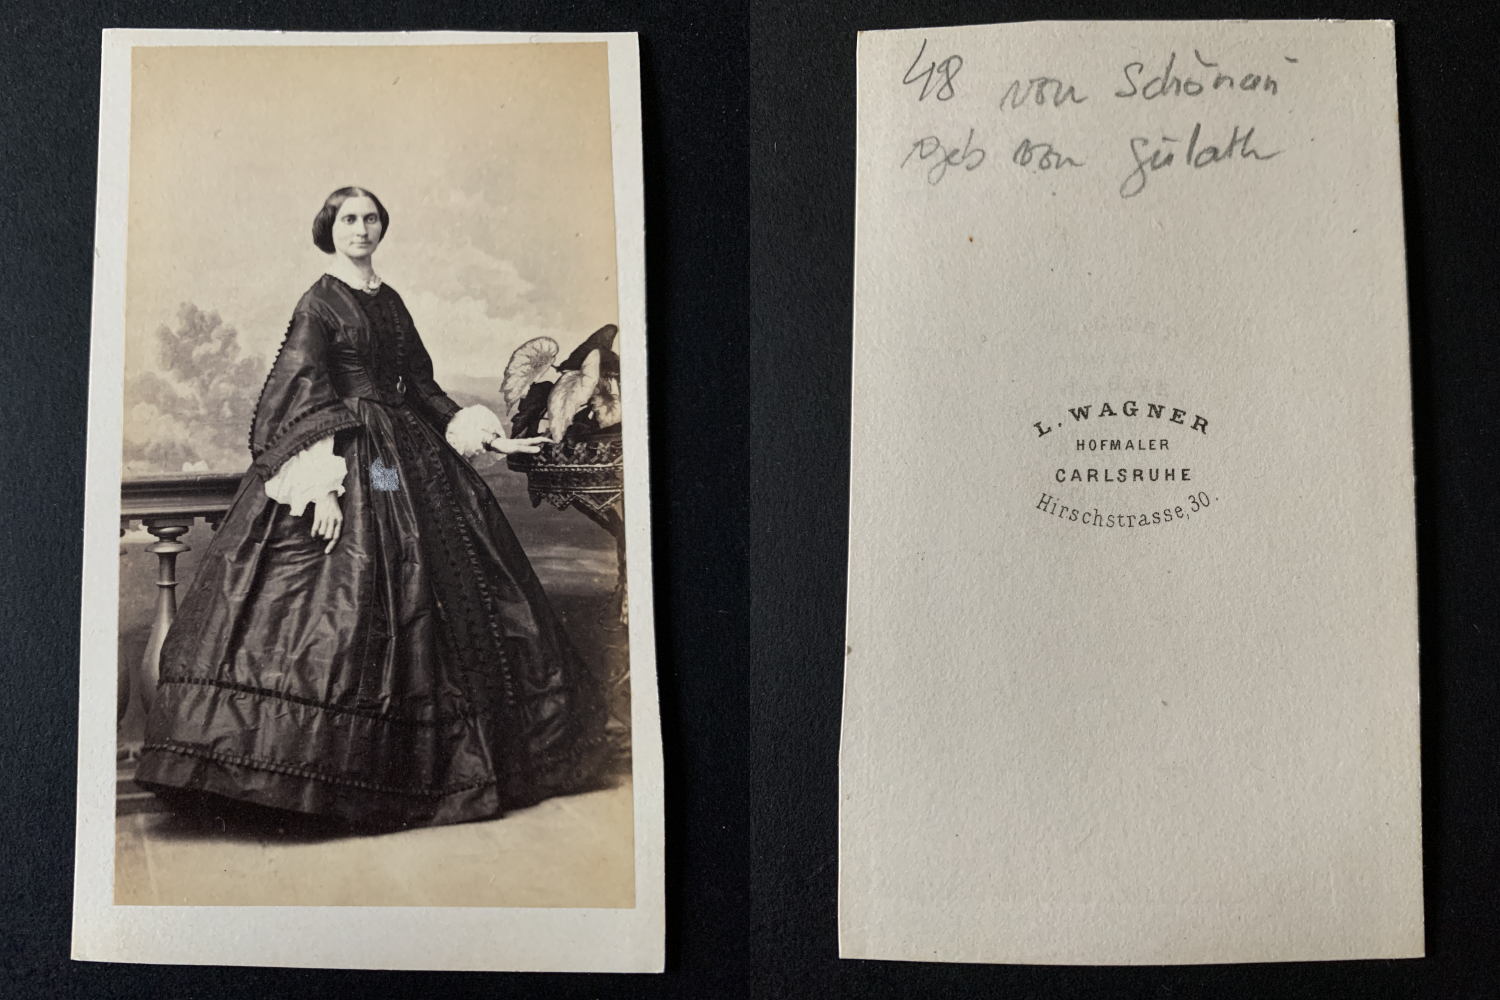 48 von Schönau
geb von Gulath
L. WAGNER
HOFMALER
CARLSRUHE
Hirschstrasse, 30.